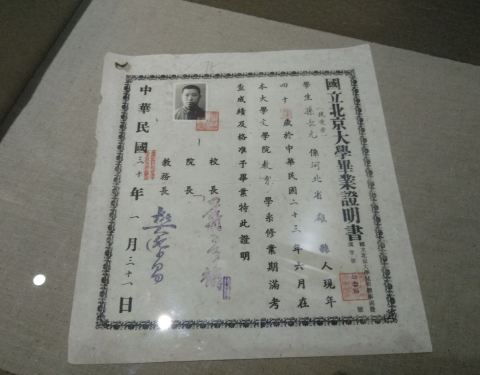 國立北京大學畢業證明書
學生孫 元係河北省雄縣人現年
四十 歲於中華民國二十三年六月在
本大學文學院教育學系修業期滿考
查成績及格准予畢業特此證明
校長
院長
教務長 樊際昌
中華民國三十 年一月三十一日